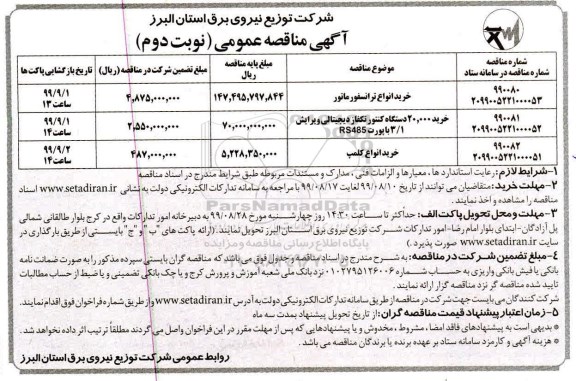 شرکت توزیع نیروی برق استان البرز
آگهی مناقصه عمومی (نوبت دوم)
شماره مناقصه
شماره مناقصه در سامانه ستاد
موضوع مناقصه
مبلغ پایه مناقصه
ریال
مبلغ تضمین شرکت در مناقصه (ریال)
تاریخ بازگشایی پاکت ها
۹۹۰۰۸۰
۲۰۹۹۰۰۵۲۲۱۰۰۰۰۵۳
خرید انواع ترانسفورماتور
۱۴۷,۴۹۵,۷۹۷,۸۴۴
۴,۸۷۵,۰۰۰,۰۰۰
۹۹/۹/۱
ساعت ۱۳
۹۹۰۰۸۱
۲۰۹۹۰۰۵۲۲۱۰۰۰۰۵۲
خرید ۲۰,۰۰۰ دستگاه کنتور تکفاز دیجیتالی ویرایش
۳/۱ با پورت RS485
۷۰,۰۰۰,۰۰۰,۰۰۰
۲,۵۵۰,۰۰۰,۰۰۰
۹۹/۹/۱
ساعت ۱۴
۹۹۰۰۸۲
۲۰۹۹۰۰۵۲۲۱۰۰۰۰۵۱
خرید انواع کلمپ
۵,۲۲۸,۳۵۰,۰۰۰
۴۸۷,۰۰۰,۰۰۰
۹۹/۹/۲
ساعت ۱۴
۱-شرایط لازم: رعایت استانداردها، معیارها و الزامات فنی، مدارک و مستندات مربوطه طبق شرایط مندرج در اسناد مناقصه
۲-مهلت خرید: متقاضیان می توانند از تاریخ ۹۹/۰۸/۱۰ لغایت ۹۹/۰۸/۱۷ با مراجعه به سامانه تدارکات الکترونیکی دولت به نشانی www.setadiran.ir اسناد
مناقصه را مشاهده و اخذ نمایند.
۳-مهلت و محل تحویل پاکت الف: حداکثر تا ساعت ۱۴:۳۰ روز چهارشنبه مورخ ۹۹/۰۸/۲۸ به دبیرخانه امور تدارکات واقع در کرج بلوار طالقانی شمالی
پل آزادگان- ابتدای بلوار امام رضا- امور تدارکات شرکت توزیع نیروی برق استان البرز تحویل نمایند. (ارائه پاکت های "ب" و "ج" بایستی از طریق بارگذاری در
سایت www.setadiran.ir صورت پذیرد.)
۴-مبلغ تضمین شرکت در مناقصه: به شرح مندرج در اسناد مناقصه و جدول فوق می باشد که مناقصه گران بایستی سپرده مذکور را به صورت ضمانت نامه
بانکی یا فیش بانکی واریزی به حساب شماره ۰۱۰۲۷۹۵۱۲۶۰۰۶ نزد بانک ملی شعبه آموزش و پرورش کرج و یا چک بانکی تضمینی و یا ضبط از حساب مطالبات
تایید شده مناقصه گر نزد مناقصه گزار ارائه نمایند.
شرکت کنندگان می بایست جهت شرکت در مناقصه از طریق سامانه تدارکات الکترونیکی دولت به آدرس www.setadiran.ir و از طریق شماره فراخوان فوق اقدام نمایند.
۵-زمان اعتبار پیشنهاد قیمت مناقصه گران: از تاریخ تحویل پیشنهاد بمدت سه ماه
* بدیهی است به پیشنهادهای فاقد امضا، مشروط، مخدوش و یا پیشنهادهایی که پس از مهلت مقرر در این فراخوان واصل می گردند مطلقا ترتیب اثر داده نخواهد شد.
* هزینه آگهی و کارمزد سامانه ستاد بر عهده برنده یا برندگان مناقصه می باشد.
روابط عمومی شرکت توزیع نیروی برق استان البرز
ParsNamadData
پایگاه اطلاع رسانی مناقصه و مزایده